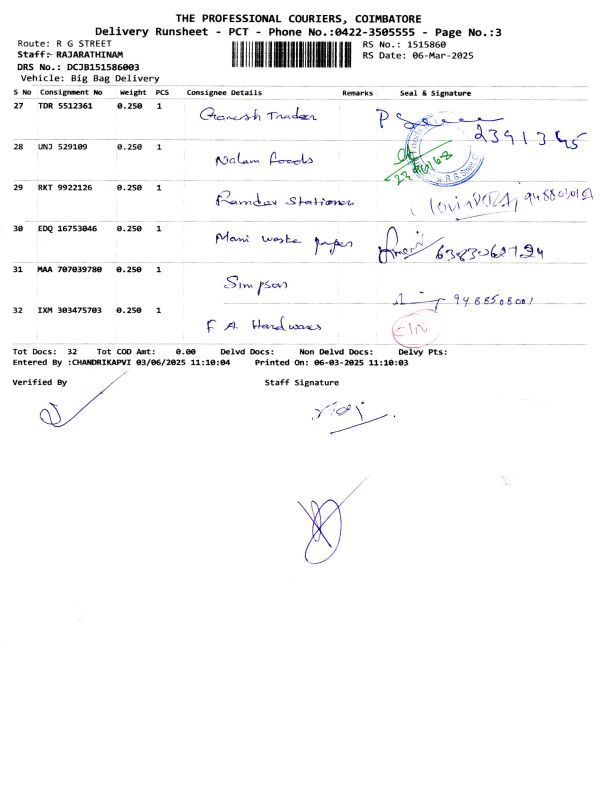 THE PROFESSIONAL COURIERS, COIMBATORE
Delivery Runsheet - PCT - Phone No.:0422-3505555 - Page No.:3
Route: R G STREET RS No.: 1515860
Staff:- RAJARATHINAM RS Date: 06-Mar-2025
DRS No.: DCJB151586003
Vehicle: Big Bag Delivery
S No Consignment No Weight PCS Consignee Details Remarks Seal & Signature
27 TDR 5512361 0.250 1 Ganesh Trader
28 UNJ 529109 0.250 1 Nalam foods
29 RKT 9922126 0.250 1 Ramdev Stationers
30 EDQ 16753046 0.250 1 Mani waste paper
31 MAA 707039780 0.250 1 Simpson
9488508001
32 IXM 303475703 0.250 1 F A Hardwares
Tot Docs: 32 Tot COD Amt: 0.00 Delvd Docs: Non Delvd Docs: Delvy Pts:
Entered By :CHANDRIKAPVI 03/06/2025 11:10:04 Printed On: 06-03-2025 11:10:03
Verified By Staff Signature